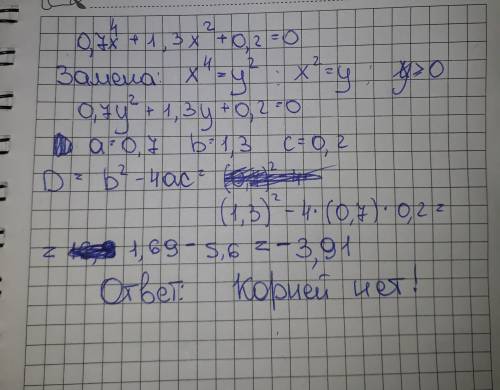 0,7x⁴ + 1,3x² + 0,2 = 0
Замена: x⁴ = y² ; x² = y ; y > 0
0,7y² + 1,3y + 0,2 = 0
a = 0,7 b = 1,3 c = 0,2
D = b² - 4ac =
(1,3)² - 4 · (0,7) · 0,2 =
= 1,69 - 5,6 = - 3,91
Ответ: Корней нет!